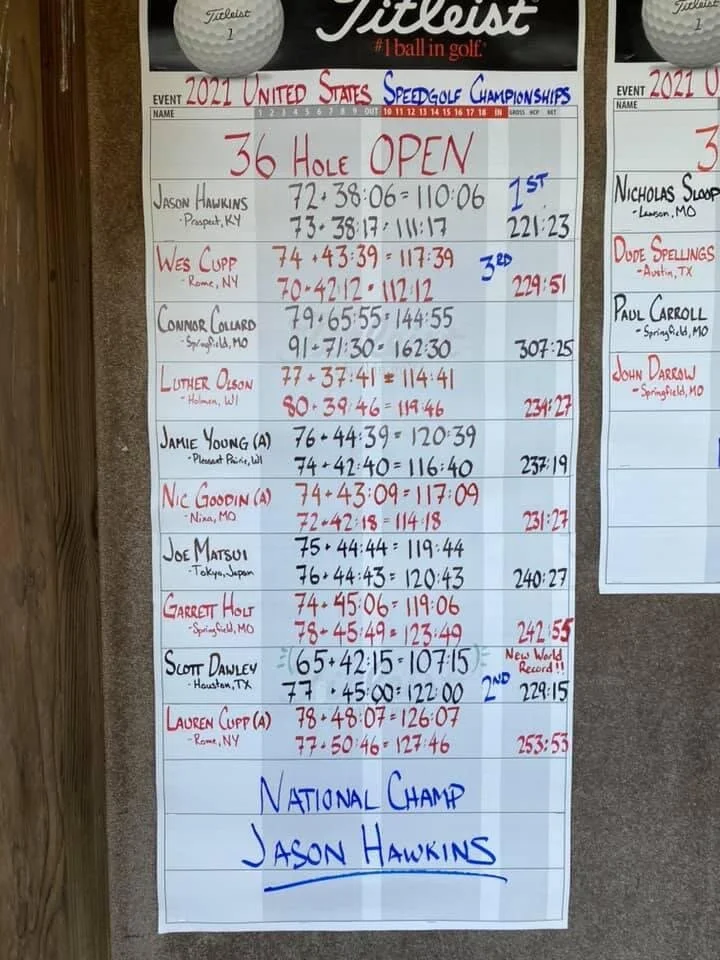 Titleist
1
Titleist
#1 ball in golf.
EVENT 2021 UNITED STATES SPEEDGOLF CHAMPIONSHIPS
NAME 1 2 3 4 5 6 7 8 9 OUT 10 11 12 13 14 15 16 17 18 IN GROSS HCP NET
36 HOLE OPEN
JASON HAWKINS 72+38:06=110:06 1ST
-Prospect, KY 73+38:17=111:17 221:23
WES CUPP 74+43:39=117:39 3RD
-Rome, NY 70+42:12=112:12 229:51
CONNOR COLLARD 79+65:55=144:55
-Springfield, MO 91+71:30=162:30 307:25
LUTHER OLSON 77+37:41=114:41
-Holmen, WI 80+39:46=119:46 234:27
JAMIE YOUNG (A) 76+44:39=120:39
-Pleasant Prairie, WI 74+42:40=116:40 237:19
NIC GOODIN (A) 74+43:09=117:09
-Nixa, MO 72+42:18=114:18 231:27
JOE MATSUI 75+44:44=119:44
-Tokyo, Japan 76+44:43=120:43 240:27
GARRETT HOLT 74+45:06=119:06
-Springfield, MO 78+45:49=123:49 242:55
SCOTT DAWLEY 65+42:15=107:15 New World Record!!
-Houston, TX 77+45:00=122:00 2ND 229:15
LAUREN CUPP (A) 78+48:07=126:07
-Rome, NY 77+50:46=127:46 253:53
NATIONAL CHAMP
JASON HAWKINS
Titleist
1
EVENT 2021 U
NAME
3
NICHOLAS SLOOP
-Lawson, MO
DUDE SPELLINGS
-Austin, TX
PAUL CARROLL
-Springfield, MO
JOHN DARROW
-Springfield, MO